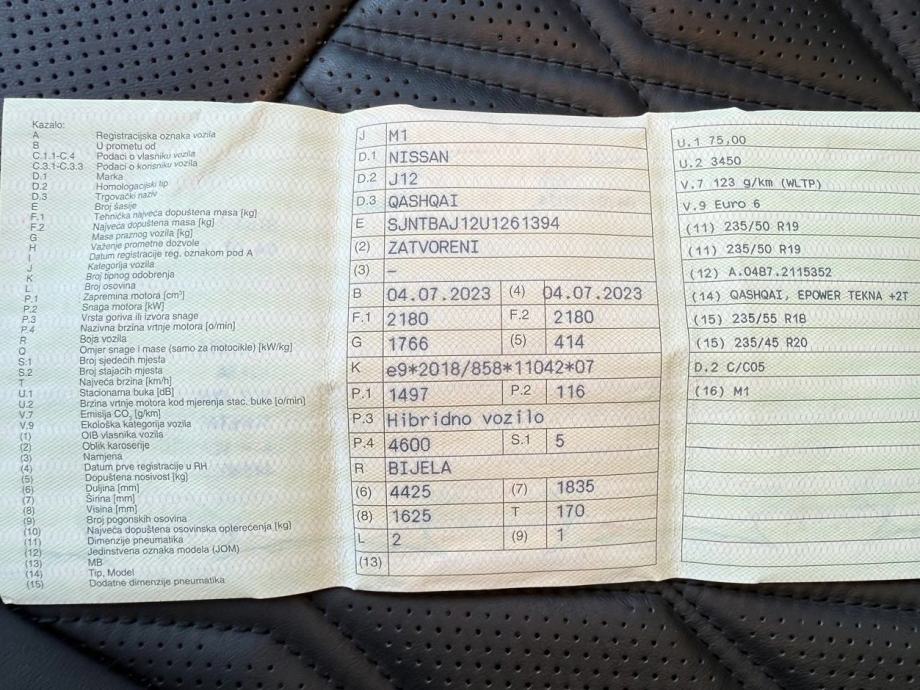 Kazalo:
A Registracijska oznaka vozila
B U prometu od
C.1.1-C.4 Podaci o vlasniku vozila
C.3.1-C.3.3 Podaci o korisniku vozila
D.1 Marka
D.2 Homologacijski tip
D.3 Trgovački naziv
E Broj šasije
F.1 Tehnička najveća dopuštena masa [kg]
F.2 Najveća dopuštena masa [kg]
G Masa praznog vozila [kg]
H Važenje prometne dozvole
I Datum registracije reg. oznakom pod A
J Kategorija vozila
K Broj tipnog odobrenja
L Broj osovina
P.1 Zapremina motora [cm³]
P.2 Snaga motora [kW]
P.3 Vrsta goriva ili izvora snage
P.4 Nazivna brzina vrtnje motora [o/min]
R Boja vozila
Q Omjer snage i mase (samo za motocikle) [kW/kg]
S.1 Broj sjedećih mjesta
S.2 Broj stajaćih mjesta
T Najveća brzina [km/h]
U.1 Stacionarna buka [dB]
U.2 Brzina vrtnje motora kod mjerenja stac. buke [o/min]
V.7 Emisija CO₂ [g/km]
V.9 Ekološka kategorija vozila
(1) OIB vlasnika vozila
(2) Oblik karoserije
(3) Namjena
(4) Datum prve registracije u RH
(5) Dopuštena nosivost [kg]
(6) Duljina [mm]
(7) Širina [mm]
(8) Visina [mm]
(9) Broj pogonskih osovina
(10) Najveća dopuštena osovinska opterećenja [kg]
(11) Dimenzije pneumatika
(12) Jedinstvena oznaka modela (JOM)
(13) MB
(14) Tip, Model
(15) Dodatne dimenzije pneumatika
J M1
D.1 NISSAN
D.2 J12
D.3 QASHQAI
E SJNTBAJ12U1261394
(2) ZATVORENI
(3) –
B 04.07.2023 (4) 04.07.2023
F.1 2180 F.2 2180
G 1766 (5) 414
K e9*2018/858*11042*07
P.1 1497 P.2 116
P.3 Hibridno vozilo
P.4 4600 S.1 5
R BIJELA
(6) 4425 (7) 1835
(8) 1625 T 170
L 2 (9) 1
(13)
U.1 75,00
U.2 3450
V.7 123 g/km (WLTP)
V.9 Euro 6
(11) 235/50 R19
(11) 235/50 R19
(12) A.0487.2115352
(14) QASHQAI, EPOWER TEKNA +2T
(15) 235/55 R18
(15) 235/45 R20
D.2 C/C05
(16) M1